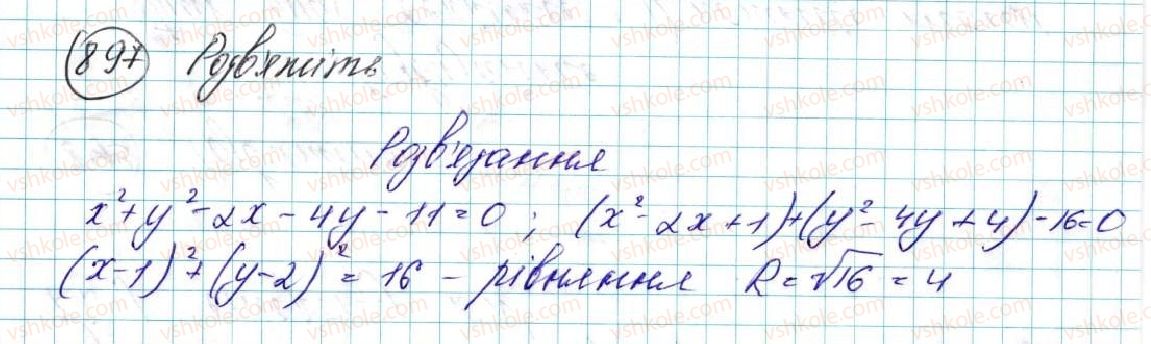 897 Розв'яжіть
Розв'язання
x²+y²-2x-4y-11=0; (x²-2x+1)+(y²-4y+4)-16=0
(x-1)²+(y-2)²=16 - рівняння R=√16=4